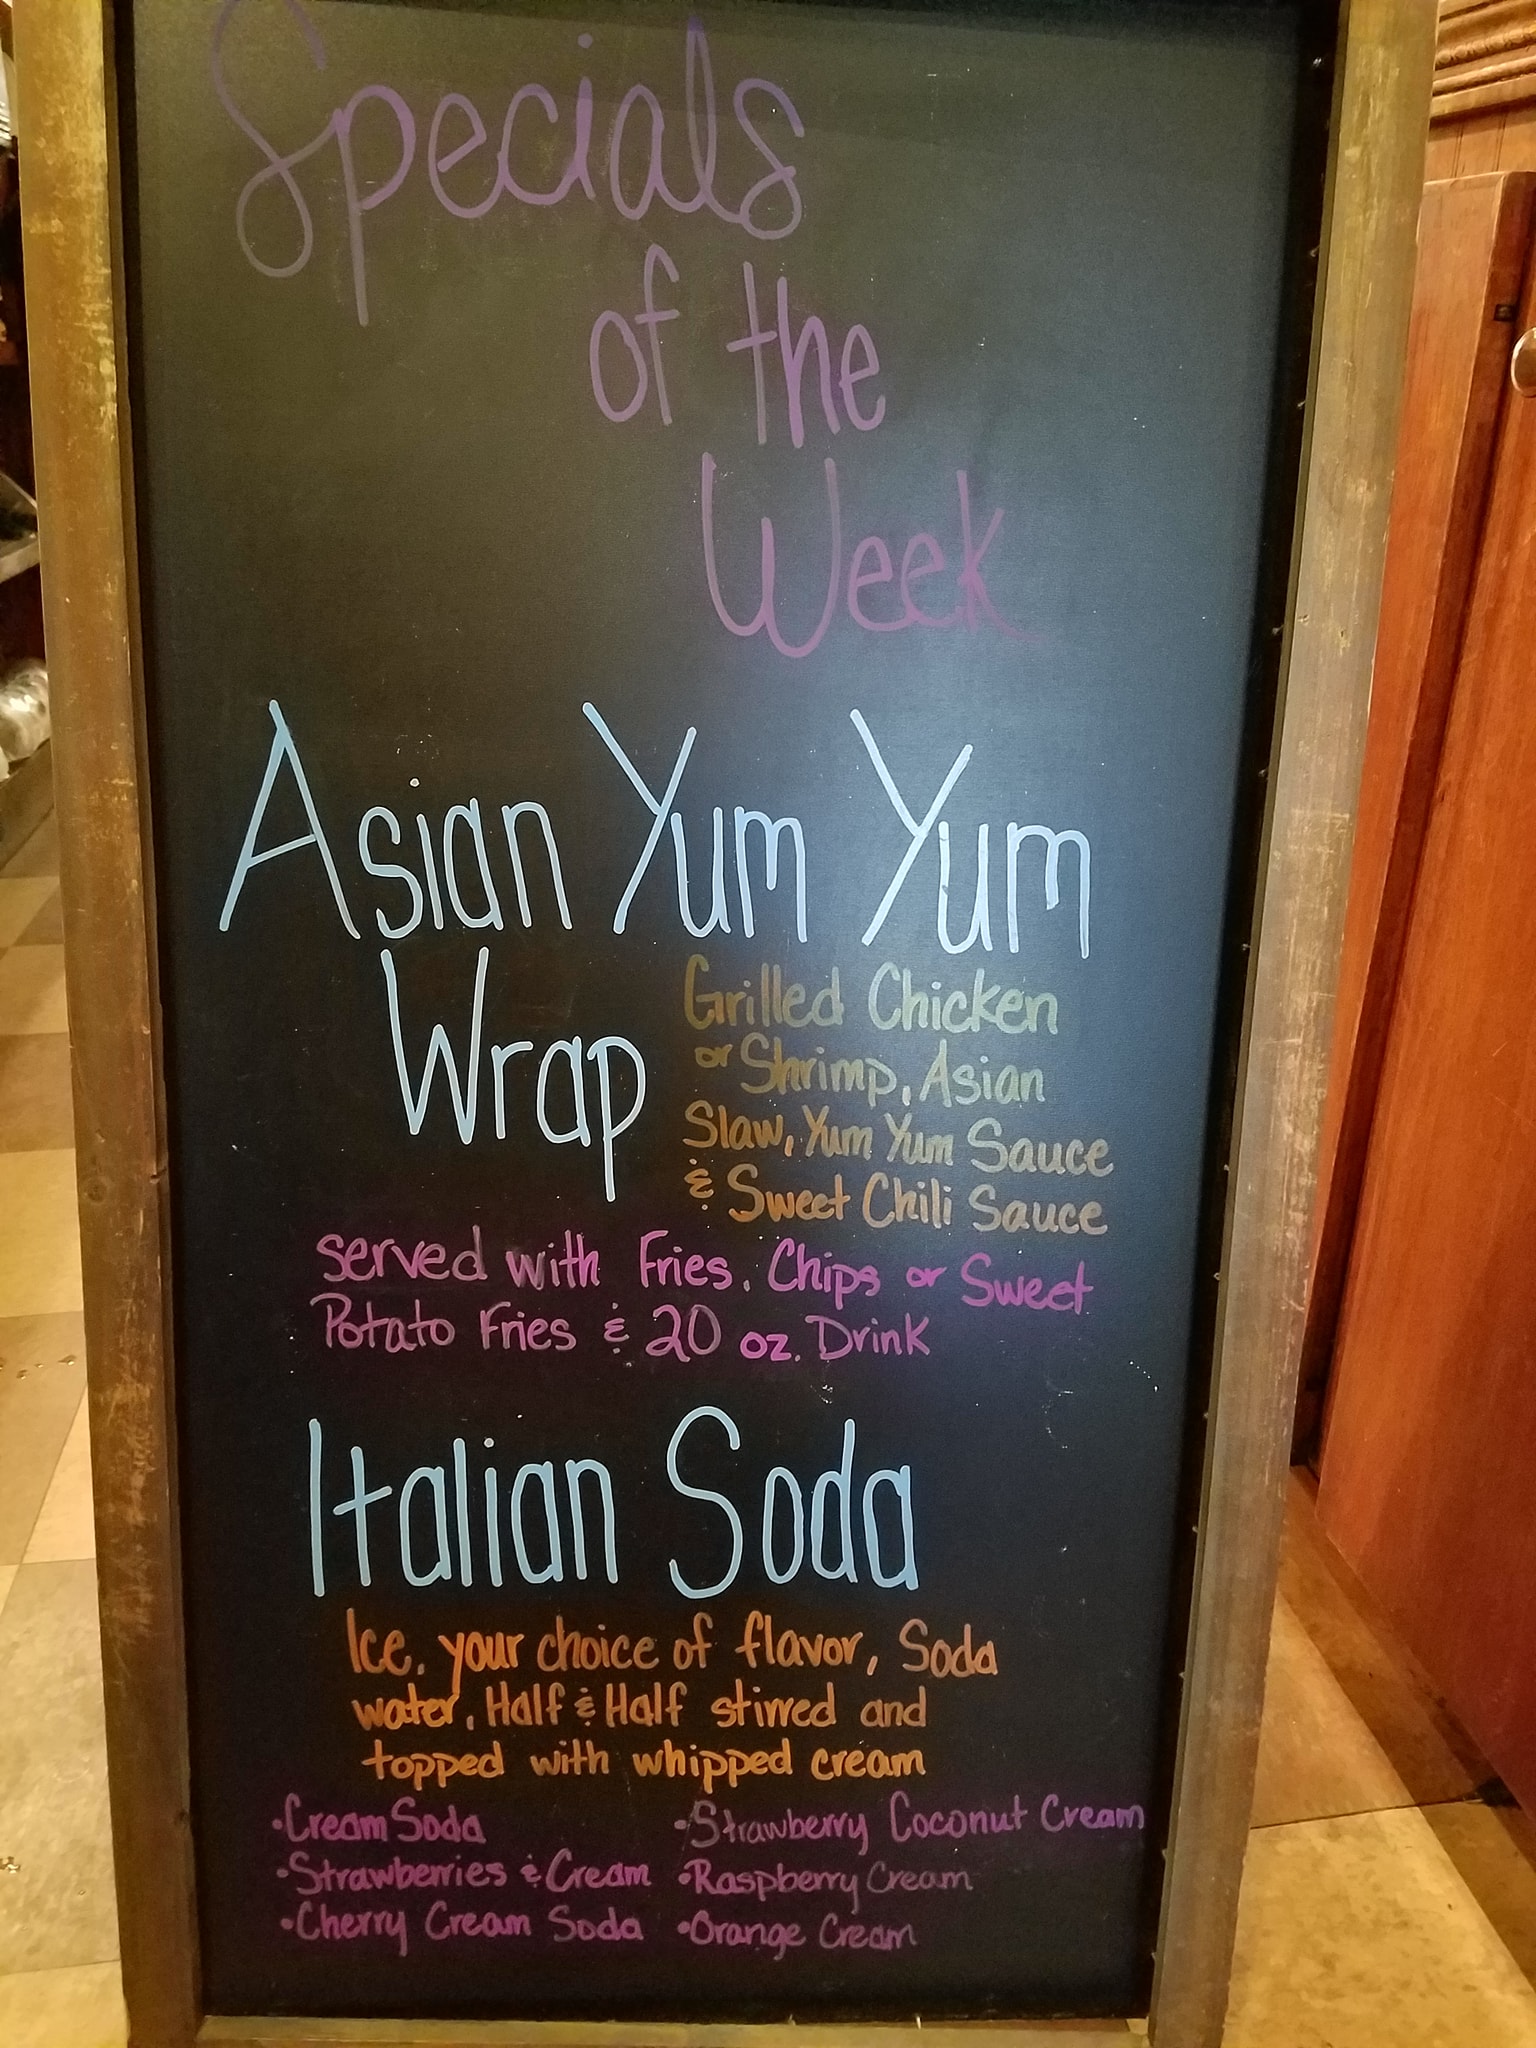 Specials
of the
Week
Asian Yum Yum
Wrap
Grilled Chicken
or Shrimp, Asian
Slaw, Yum Yum Sauce
& Sweet Chili Sauce
served with Fries, Chips or Sweet
Potato Fries & 20 oz. Drink
Italian Soda
Ice, your choice of flavor, Soda
water, Half & Half stirred and
topped with whipped cream
•Cream Soda
•Strawberries & Cream
•Cherry Cream Soda
•Strawberry Coconut Cream
•Raspberry Cream
•Orange Cream